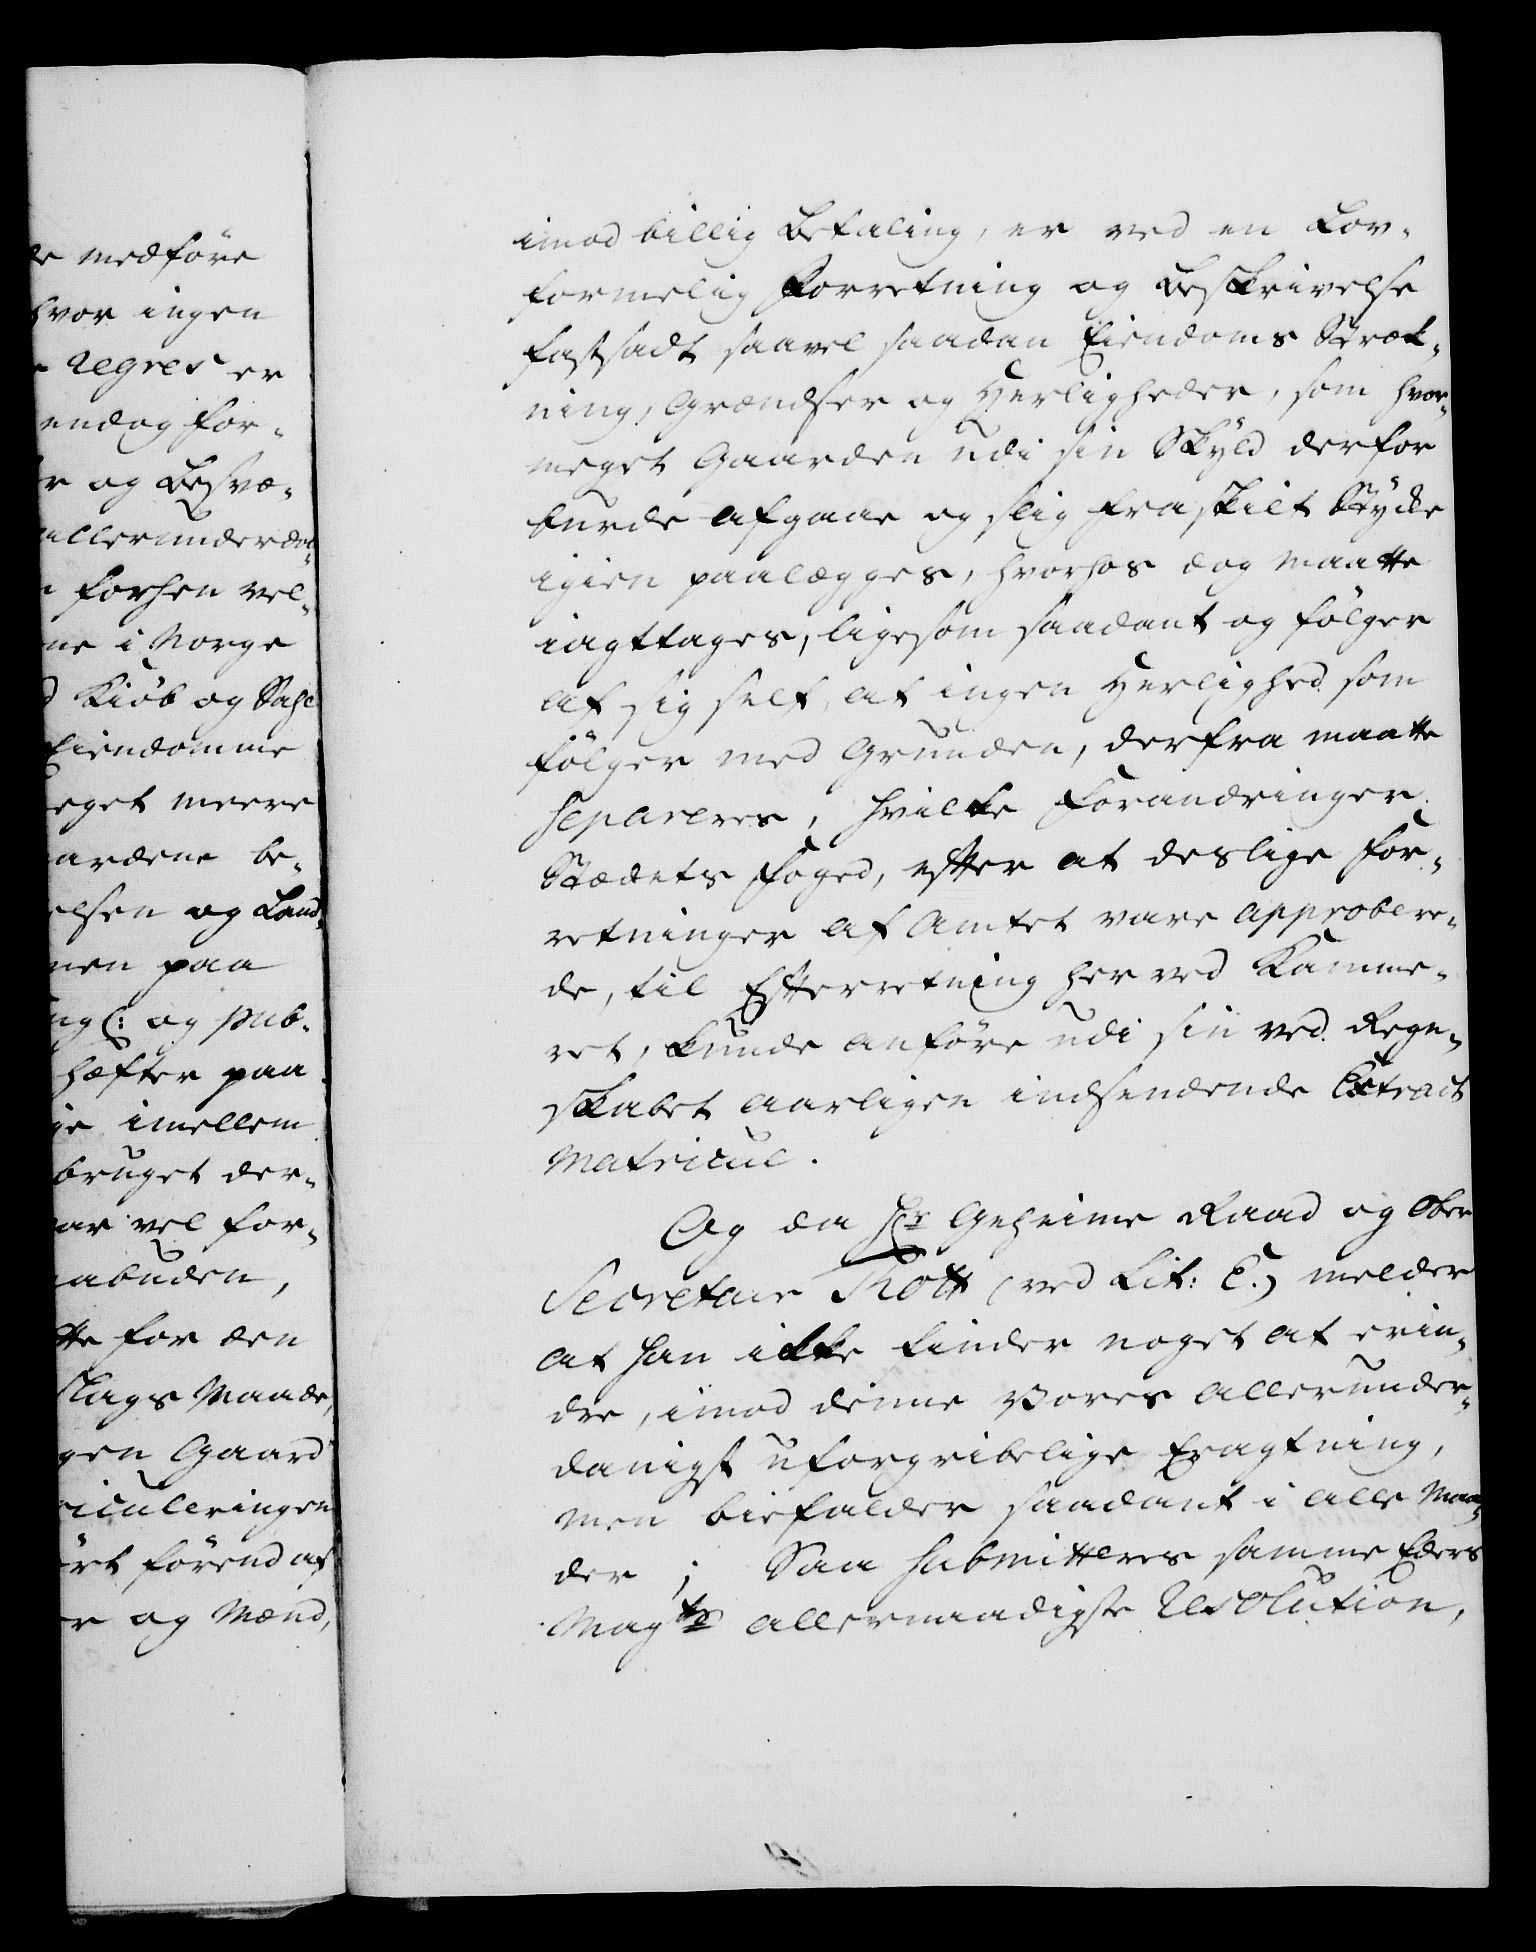 de medföre
hvor ingen
Regres er
endog for-
er og Besvæ-
allerunderda-
forhen vel-
ne i Norge
d Kiöb og Sahl
Eiendomme
eget meere
aardene be-
elsen og Land-
men paa
ng (: og pub-
hæfter paa
ge imellem
bruget der-
ar vel for-
abuden,
tte for den
slags Maade,
gen Gaard
riculeringen
ört förend af
r og Mænd,
imod billig Betaling, er ved en Lov-
formelig Forretning og Beskrivelse
fastsadt saavel saadan Eiendoms Stræk-
ning, Grændser og Herligheder, som hvor-
meget Gaarden udi sin Skyld derfor
burde afgaae og slig fraskilt Stykke
igien paalægges, hvorhos dog maatte
iagttages, ligesom saadant og fölger
af sig self, at ingen Herlighed som
fölger med Grunden, derfra maatte
separeres, hvilke Forandringer
Stædets Foged, efter at deslige For-
retninger af Amtet vare approbere-
de, til Efterretning her ved Kamme-
ret, kunde anföre udi sin ved Regn-
skabet aarligen indsendende Extract
Matricul.
Og da Hr Geheime Raad og Ober
Secretair Thott (ved Lit: C.) melder
at han ikke finder noget at erin-
dre, imod denne Vores allerunder-
danigst uforgribelige Eragtning,
men biefalder saadant i alle Maa-
der; Saa submitteres samme Eders
Mayts allernaadigste Resolution,